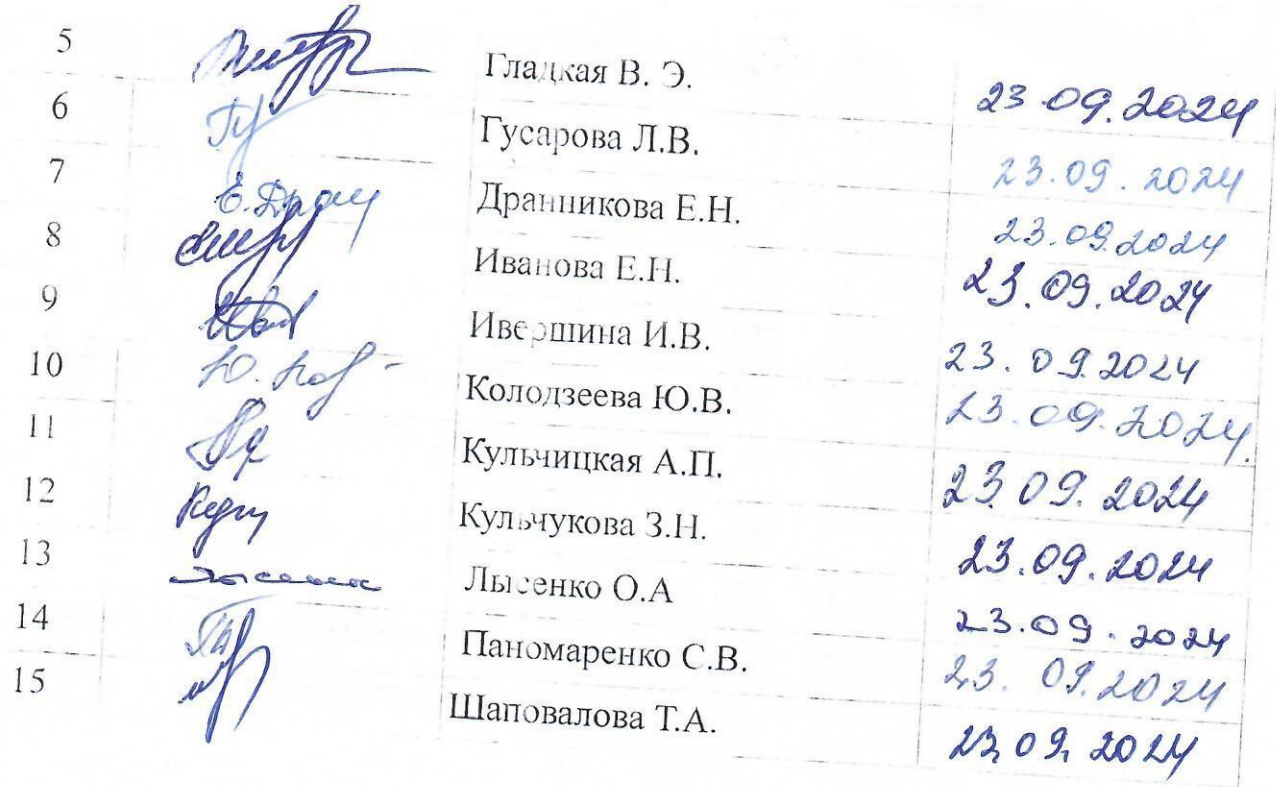 5 Гладкая В. Э. 23 09.2024
6 Гусарова Л.В. 23.09.2024
7 Е.Дран Дранникова Е.Н. 23.09.2024
8 Иванова Е.Н. 23.09.2024
9 Ивершина И.В. 23.09.2024
10 Колодзеева Ю.В. 23.09.2024.
11 Кульчицкая А.П. 23.09.2024
12 Кульчукова З.Н. 23.09.2024
13 Лысенко О.А 23.09.2024
14 Паномаренко С.В. 23.09.2024
15 Шаповалова Т.А. 23.09.2024